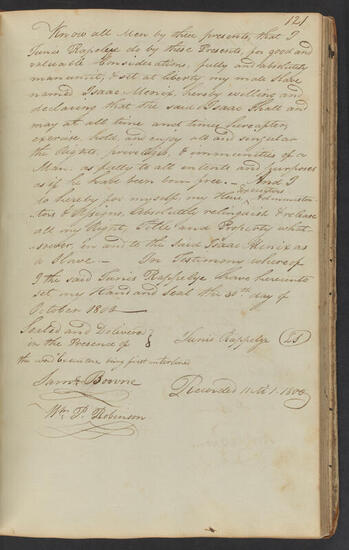 121
Know all Men by these presents, that I
Tunis Rapelye do by these Presents, for good and
valuable Considerations, fully and absolutely
manumit, & set at liberty my male Slave
named Isaac Menix, hereby willing and
declaring that the said Isaac Shall and
may at all time and times hereafter,
exercise hold, and enjoy all and singular
the Rights, privileges, & immunities of a
Man, as fully to all intents and purposes
as if he had been born free. — And I
do hereby for myself, my Heirs, Executors Administra-
tors & Assigns, Absolutely relinquish & release
all my Right, Title and Property what-
soever, in and to the Said Isaac Menix as
a Slave — In Testimony whereof
I the said Tunis Rappelye have hereunto
set my Hand and Seal the day of
October 1808
Sealed and Delivered
in the Presence of
Tunis Rappelye LS
the word Executors being first interlined
Saml. Bowne
Recorded 1. 1808
Wm. P. Robinson